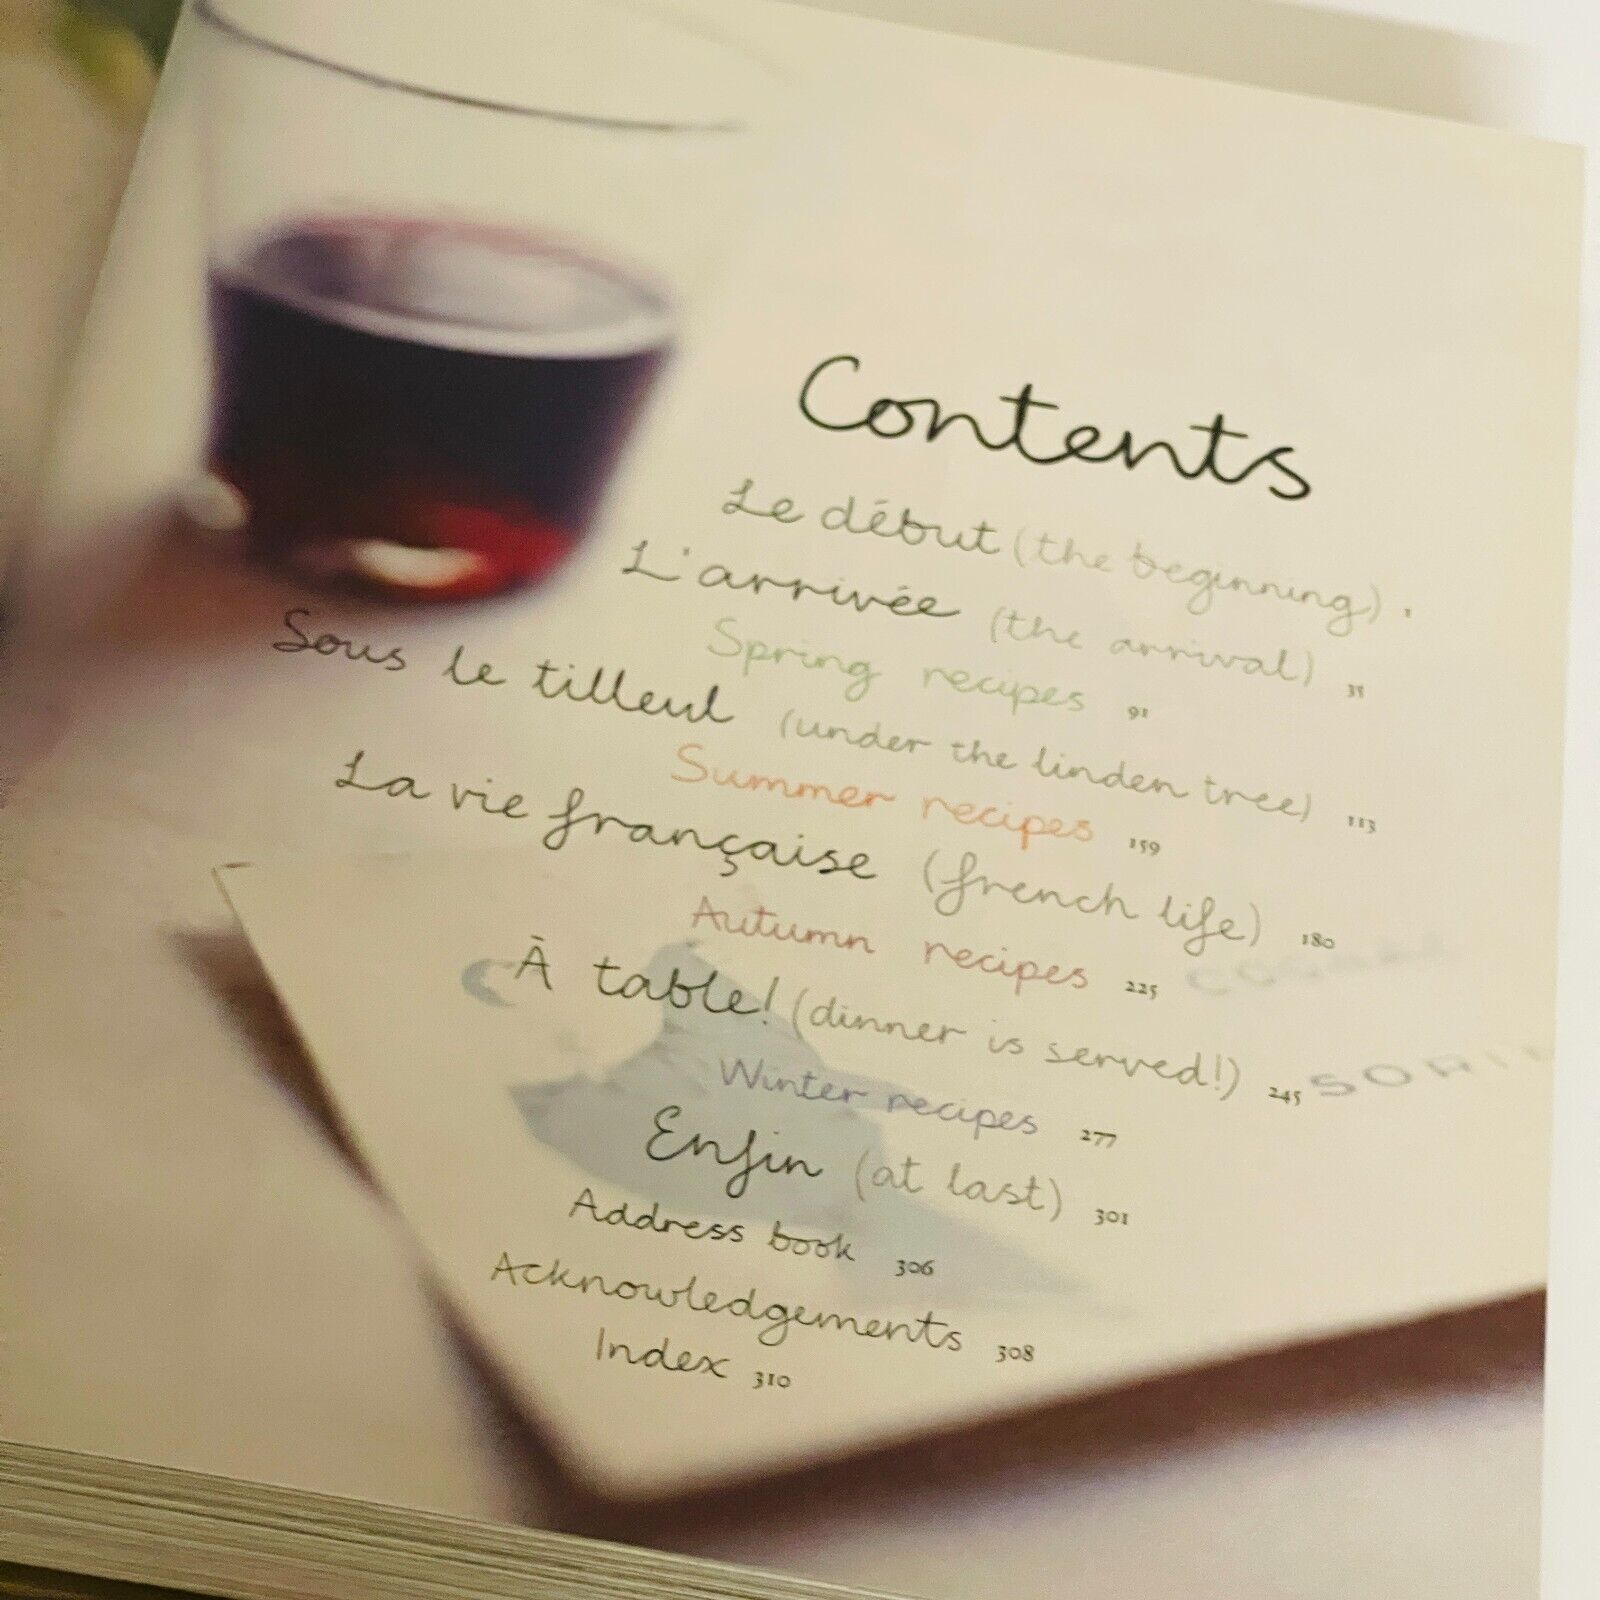 Contents
Le début (the beginning) 1
L'arrivée (the arrival) 35
Spring recipes 91
Sous le tilleul (under the linden tree) 113
Summer recipes 159
La vie française (french life) 180
Autumn recipes 225
À table! (dinner is served!) 245
Winter recipes 277
Enfin (at last) 301
Address book 306
Acknowledgements 308
Index 310